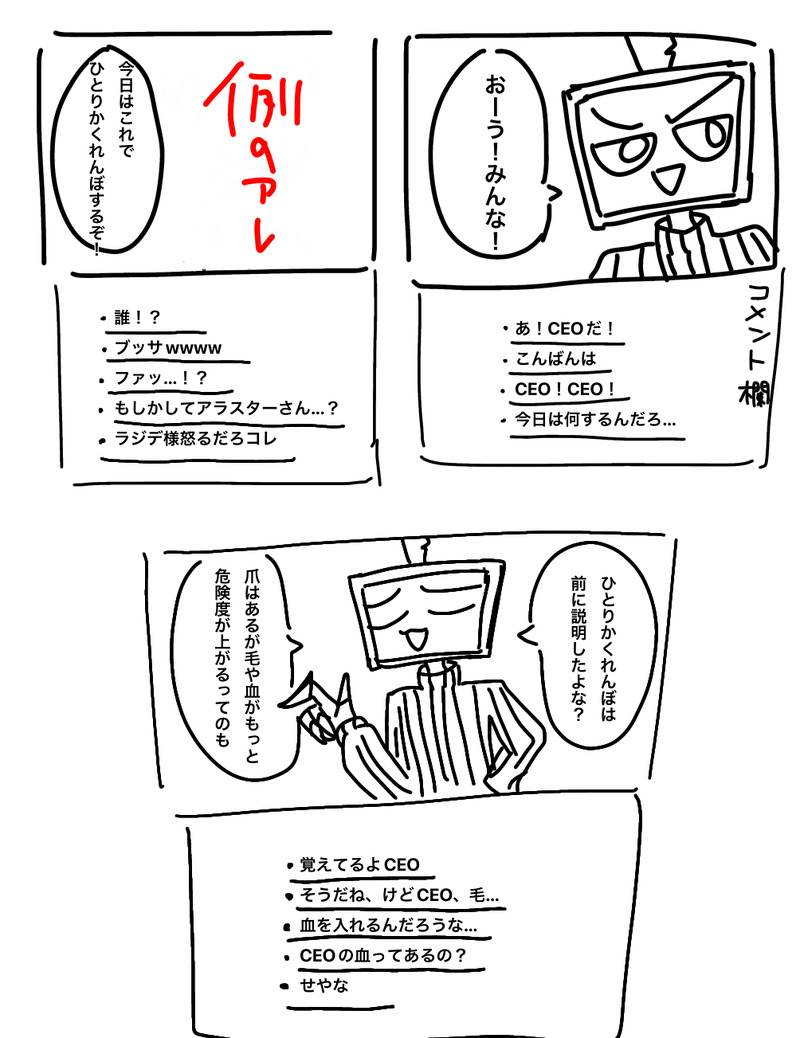 おーう！みんな！
コメント欄
・あ！CEOだ！
・こんばんは
・CEO！CEO！
・今日は何するんだろ...
例のアレ
今日はこれで
ひとりかくれんぼするぞ！
・誰！？
・ブッサwwww
・ファッ...！？
・もしかしてアラスターさん...？
・ラジデ様怒るだろコレ
ひとりかくれんぼは
前に説明したよな？
爪はあるが毛や血がもっと
危険度が上がるってのも
・覚えてるよCEO
・そうだね、けどCEO、毛...
・血を入れるんだろうな...
・CEOの血ってあるの？
・せやな